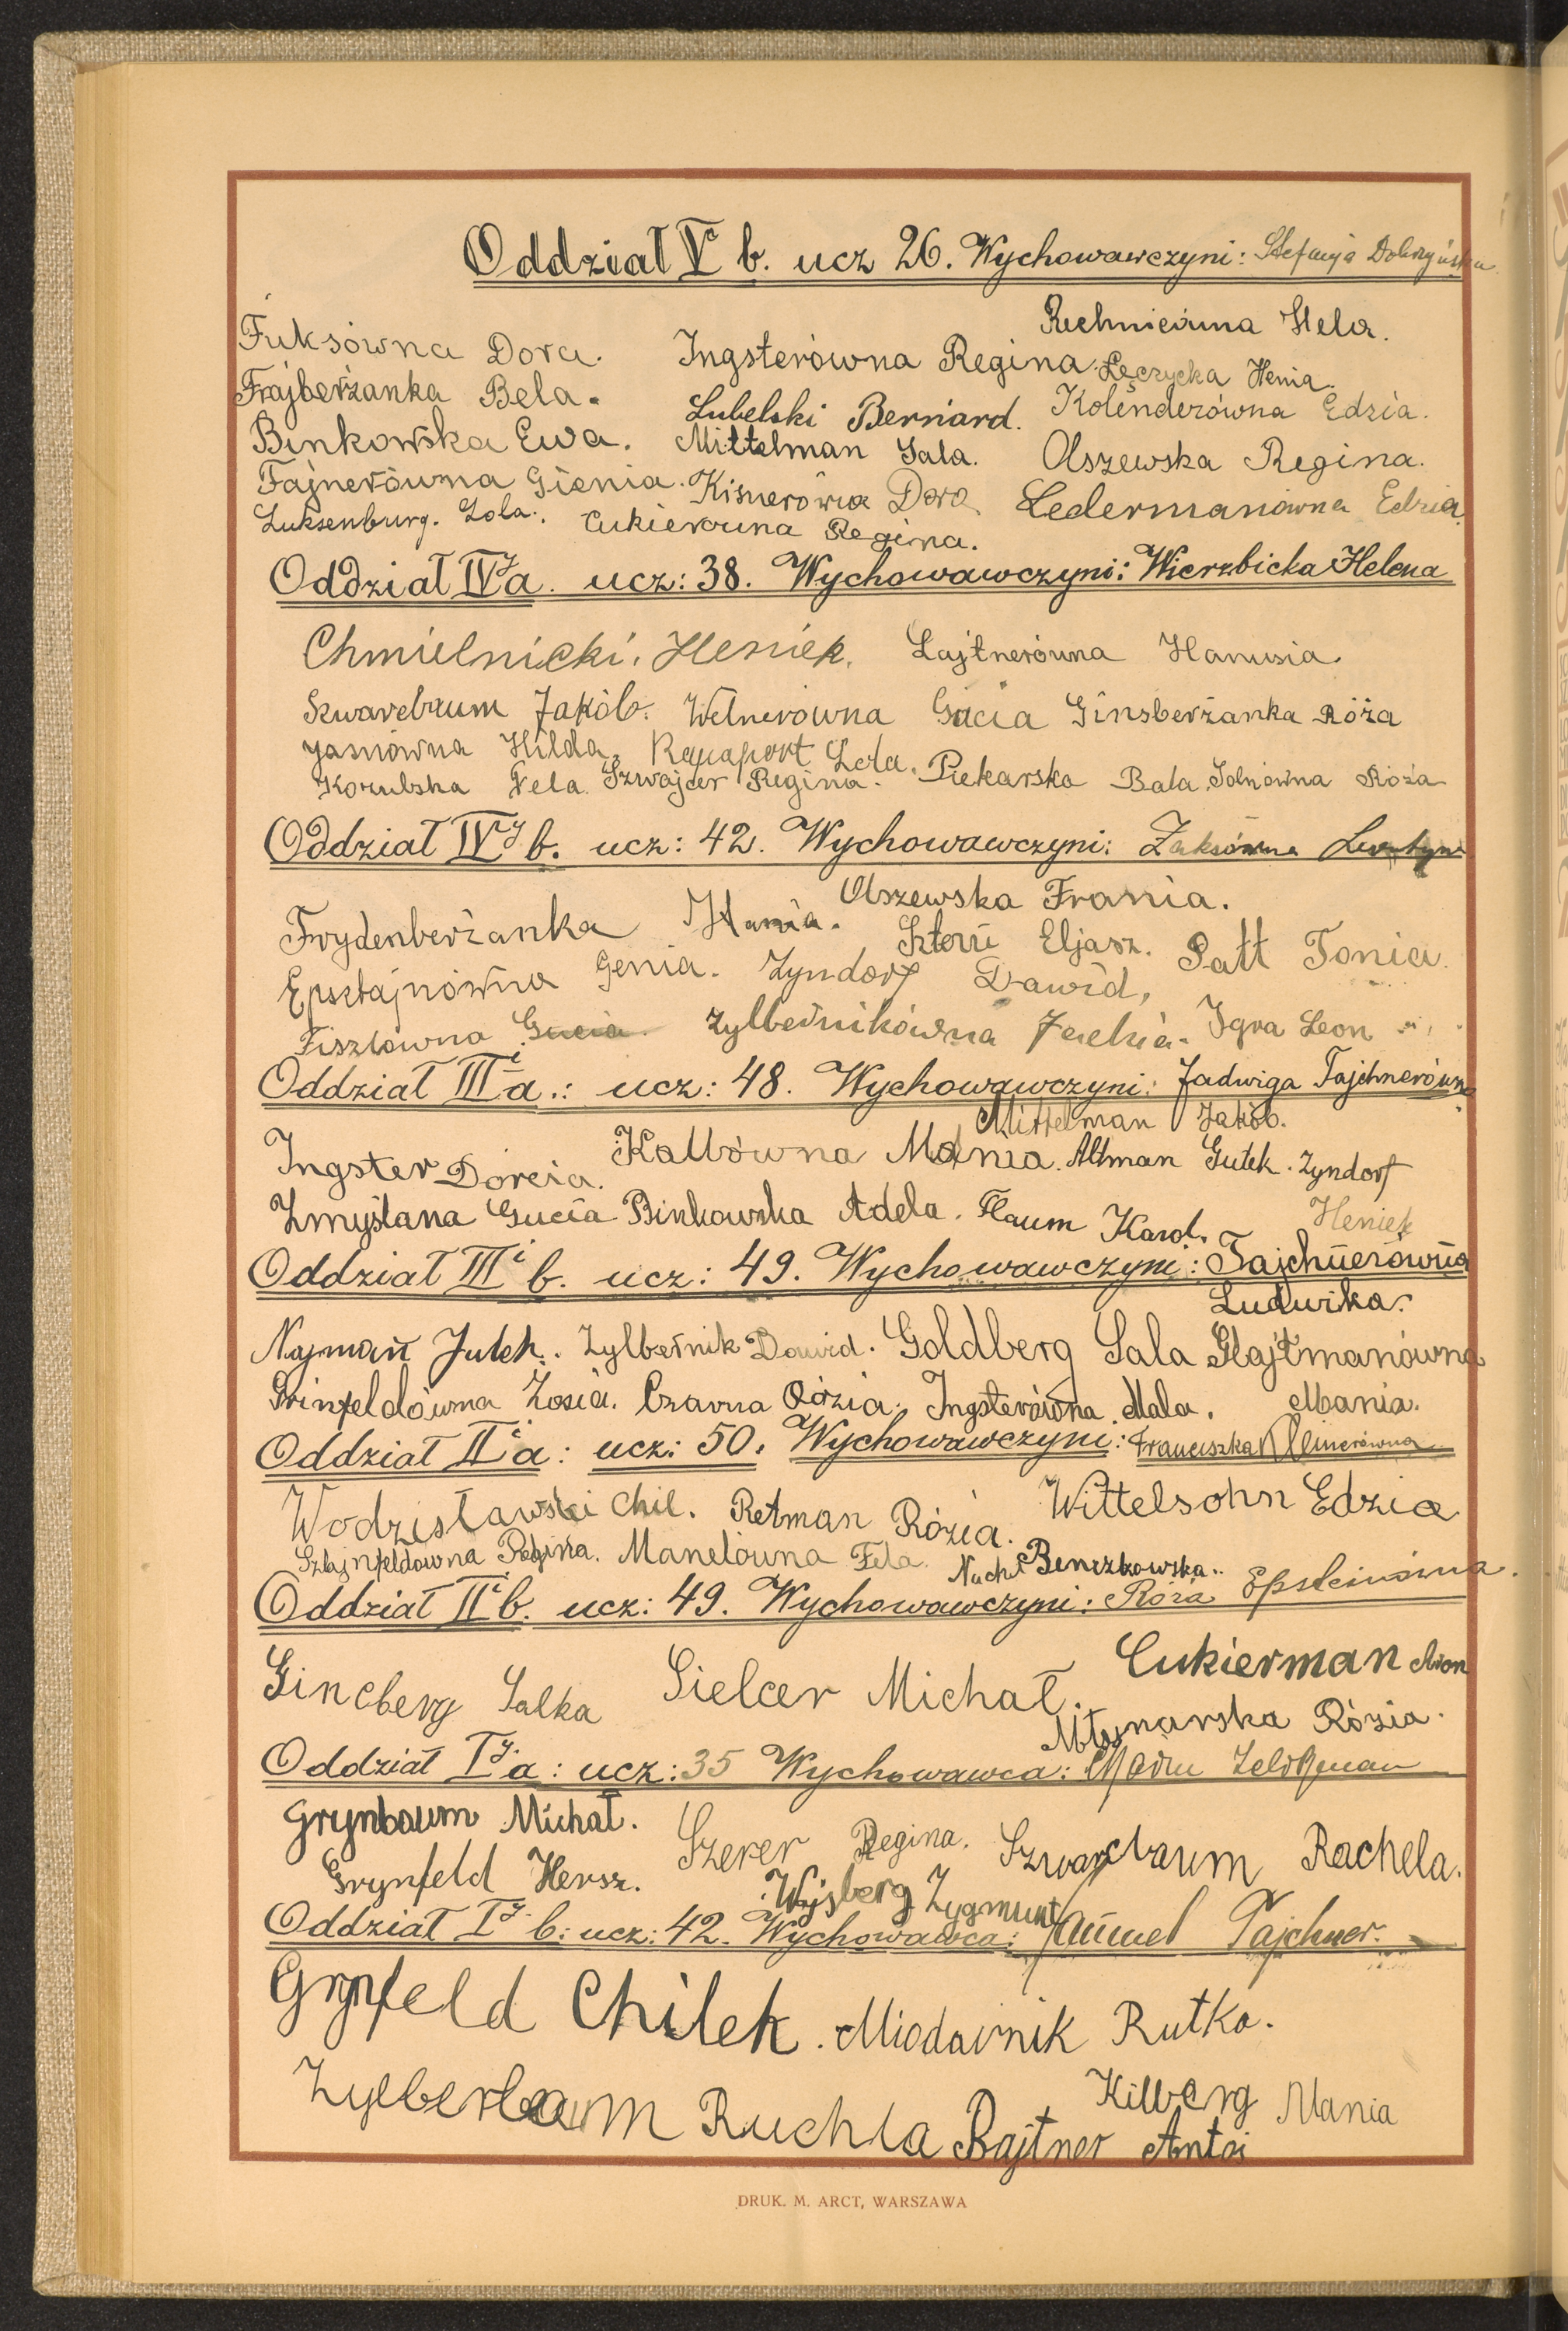 Oddział V b. ucz 26. Wychowawczyni: Stefanja Dobrzyńska
Rechnicówna Hela.
Fuksówna Dora. Ingsterówna Regina. Łęczycka Henia.
Frajberżanka Bela. Lubelski Bernard. Kolenderówna Edzia.
Binkowska Ewa. Mittelman Sala. Olszewska Regina.
Fajnerówna Gienia. Kisnerówna Dora. Ledermanówna Edzia.
Luksenburg. Lola. Cukierówna Regina.
Oddział IVy a. ucz: 38. Wychowawczyni: Wierzbicka Helena
Chmielnicki, Heniek. Lajtnerówna Hanusia.
Szwarcbaum Jakób. Welnerówna Gucia Ginsberżanka Róża
Jasnówna Hilda. Rapaport Lola.
Korubska Fela. Szwajcer Regina. Piekarska Bala. Solnówna Róża
Oddział IVy b. ucz: 42. Wychowawczyni: Zaksówna
Olszewska Frania.
Frydenberżanka Hania. Sztern Eljasz. Patt Tonia.
Epsztajnówna Genia. Zyndorf Dawid,
Fiszlówna Gucia. Zylbernikówna Igra Leon
Oddział IIIi a.: ucz: 48. Wychowawczyni: Jadwiga Tajchnerówna
Mittelman Jakób.
Ingster Dorcia. Kallówna Mania. Altman Gutek. Zyndorf
Zmyślana Gucia Binkowska Adela. Flaum Karol. Heniek
Oddział IIIi b. ucz: 49. Wychowawczyni: Tajchnerówna
Ludwika.
Najman Julek. Zylbernik Dawid. Goldberg Sala Glajtmanówna
Grinfeldówna Zosia. Czarna Rózia. Ingsterówna Mala. Mania.
Oddział IIi a: ucz: 50. Wychowawczyni: Franciszka Kleinerówna
Wodzisławski Chil. Retman Rózia. Wittelsohn Edzia
Sztajnfeldówna Regina. Manelówna Fela. Nacht Benczkowska..
Oddział IIi b. ucz: 49. Wychowawczyni: Róża Epsteinówna.
Gincberg Salka Sielcer Michał. Cukierman Aron
Młynarska Rózia.
Oddział Iy a: ucz: 35 Wychowawca:
Grynbaum Michał. Szerer Regina. Szwarcbaum Rachela.
Grynfeld Hersz. Wajsberg Zygmunt
Oddział Iy b: ucz: 42. Wychowawca: Samuel Tajchner.
Grynfeld Chilek. Miodownik Rutka.
Zylberbaum Ruchla Kilberg Mania
Rajtner Antoi
DRUK. M. ARCT, WARSZAWA